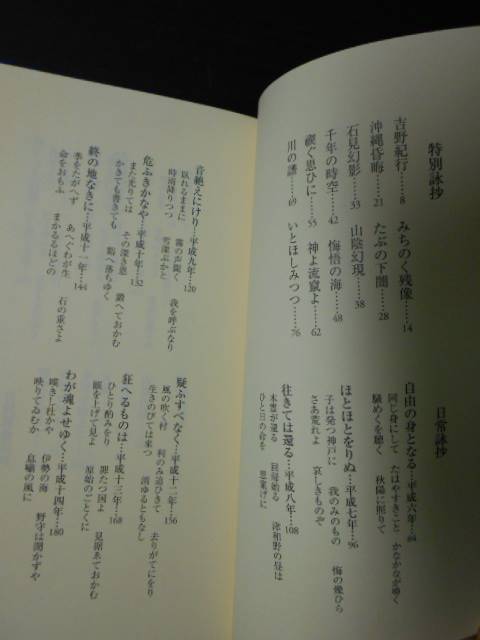 特別詠抄
吉野紀行……8 みちのく残像……14
沖縄昏晦……21 たぶの下闇……28
石見幻影……33 山陰幻現……38
千年の時空……42 悔悟の海……48
禊ぐ思ひに……55 神よ流竄よ……62
川の譜……69 いとほしみつつ……76
日常詠抄
自由の身となる…平成六年…84
同じ身にして たはやすきこと かなかながゆく
騒めくを聴く 秋陽に照りて
ほとほとをりぬ…平成七年…96
子は発つ神戸に 我のみのもの 悔の幾ひら
さあ荒れよ 哀しきものぞ
往きては還る…平成八年…108
木霊が還る 回帰始る 津和野の昼は
ひと日の命を 思案げに
音絶えにけり…平成九年…120
臥れるままに 霧の声聞く 我を呼ぶなり
時雨降りつつ 雪深ぶかと
危ふきかなや…平成十年…132
また光りては その深き恩 鍛へておかむ
かきても書きても 鞘へ落ちゆく
終の地なきに…平成十一年…144
季をたがへず あへぐわが生 石の重さよ
命をおもふ まかるるほどの
疑ふすべなく…平成十二年…156
風の吹く村 利のみ追ひきて 去りがてにをり
生きのびては来つ 清ゆるともなし
狂へるものは…平成十三年…168
ひとり酌みをり 狎たつ国よ 見据ゑておかむ
眼を上げて見よ 原始のごとくに
わが魂よせゆく…平成十四年…180
嘆きし杜かや 伊勢の海 野守は聞かずや
映りてゐむか 息嘯の風に